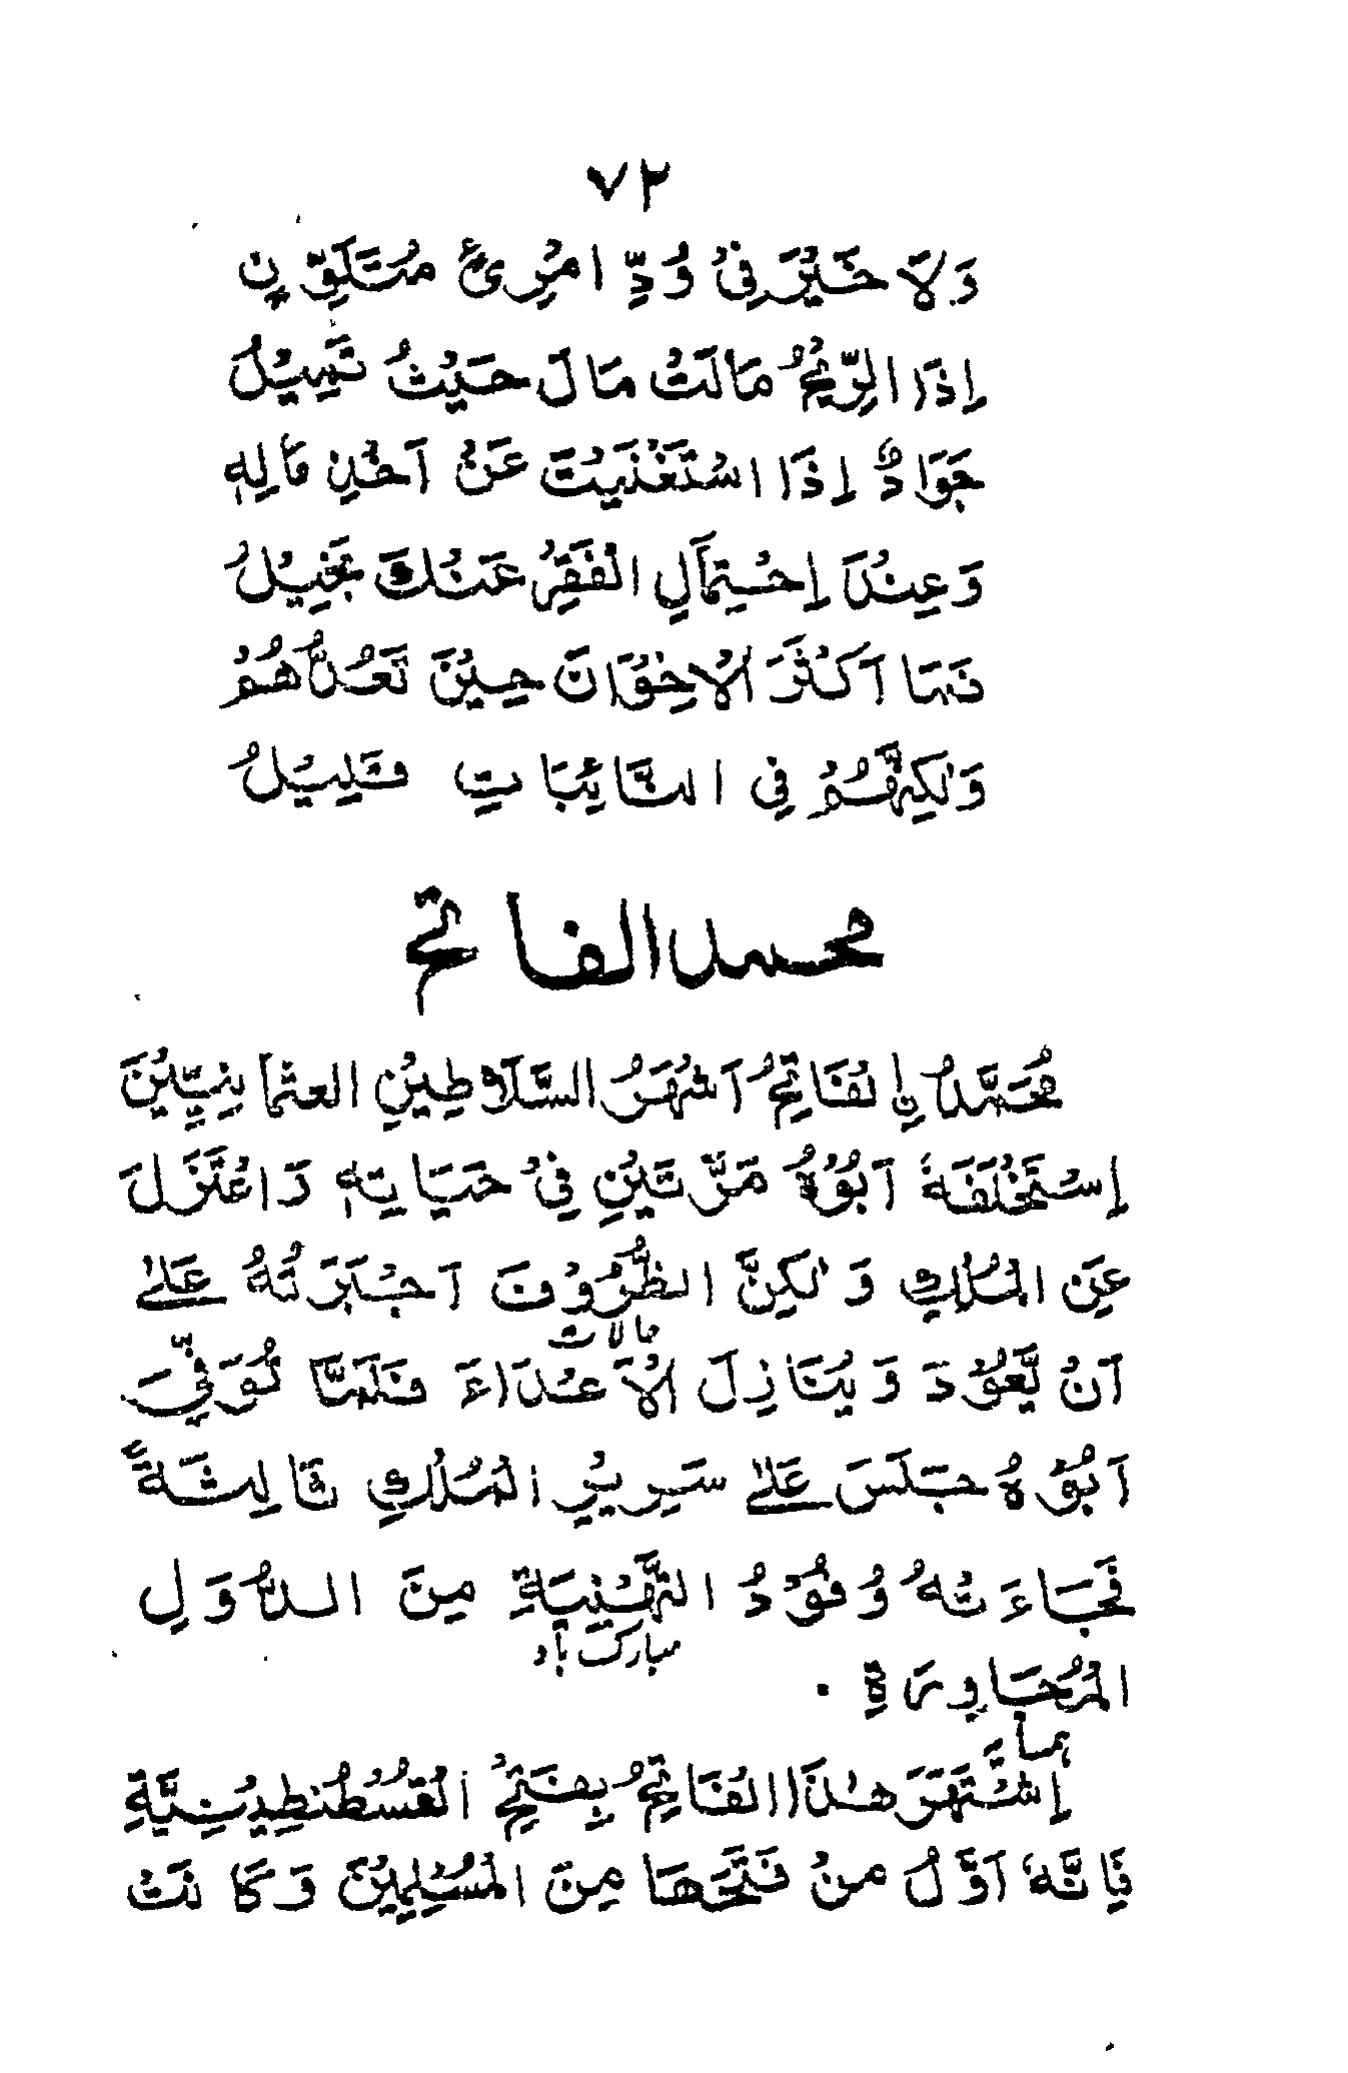 ٧٢
وَلَا خَيْرَ فِيْ وُدِّ امْرِئٍ مُتَلَوِّنٍ
اِذَا الرِّيْحُ مَالَتْ مَالَ حَيْثُ تَمِيْلُ
جَوَادٌ اِذَا اسْتَغْنَيْتَ عَنْ اَخْذِ مَالِهٖ
وَعِنْدَ اِحْتِمَالِ الْفَقْرِ عَنْكَ بَخِيْلُ
فَمَا اَكْثَرَ الْاِخْوَانَ حِيْنَ تَعُدُّهُمْ
وَلٰكِنَّهُمْ فِي النَّائِبَاتِ قَلِيْلُ
محمد الفاتح
مُحَمَّدُ نِ الْفَاتِحُ اَشْهَرُ السَّلَاطِيْنِ العثمَانِيِّيْنَ
اِسْتَخْلَفَهٗ اَبُوْهُ مَرَّتَيْنِ فِيْ حَيَاتِهٖ وَاعْتَزَلَ
عَنِ الْمُلْكِ وَلٰكِنَّ الظُّرُوْفَ اَجْبَرَتْهُ عَلٰى
حالات
اَنْ يَّعُوْدَ وَيُنَازِلَ الْاَعْدَاءَ فَلَمَّا تُوَفِّيَ
اَبُوْهُ جَلَسَ عَلٰى سَرِيْرِ الْمُلْكِ ثَالِثَةً
فَجَاءَتْهُ وُفُوْدُ التَّهْنِيَةِ مِنَ الدُّوَلِ
مبارک باد
الْمُجَاوِرَةِ .
ہمسایہ
اِشْتَهَرَ هٰذَا الْفَاتِحُ بِفَتْحِ الْقُسْطُنْطِيْنِيَّةِ
فَاِنَّهٗ اَوَّلُ مَنْ فَتَحَهَا مِنَ الْمُسْلِمِيْنَ وَكَانَتْ